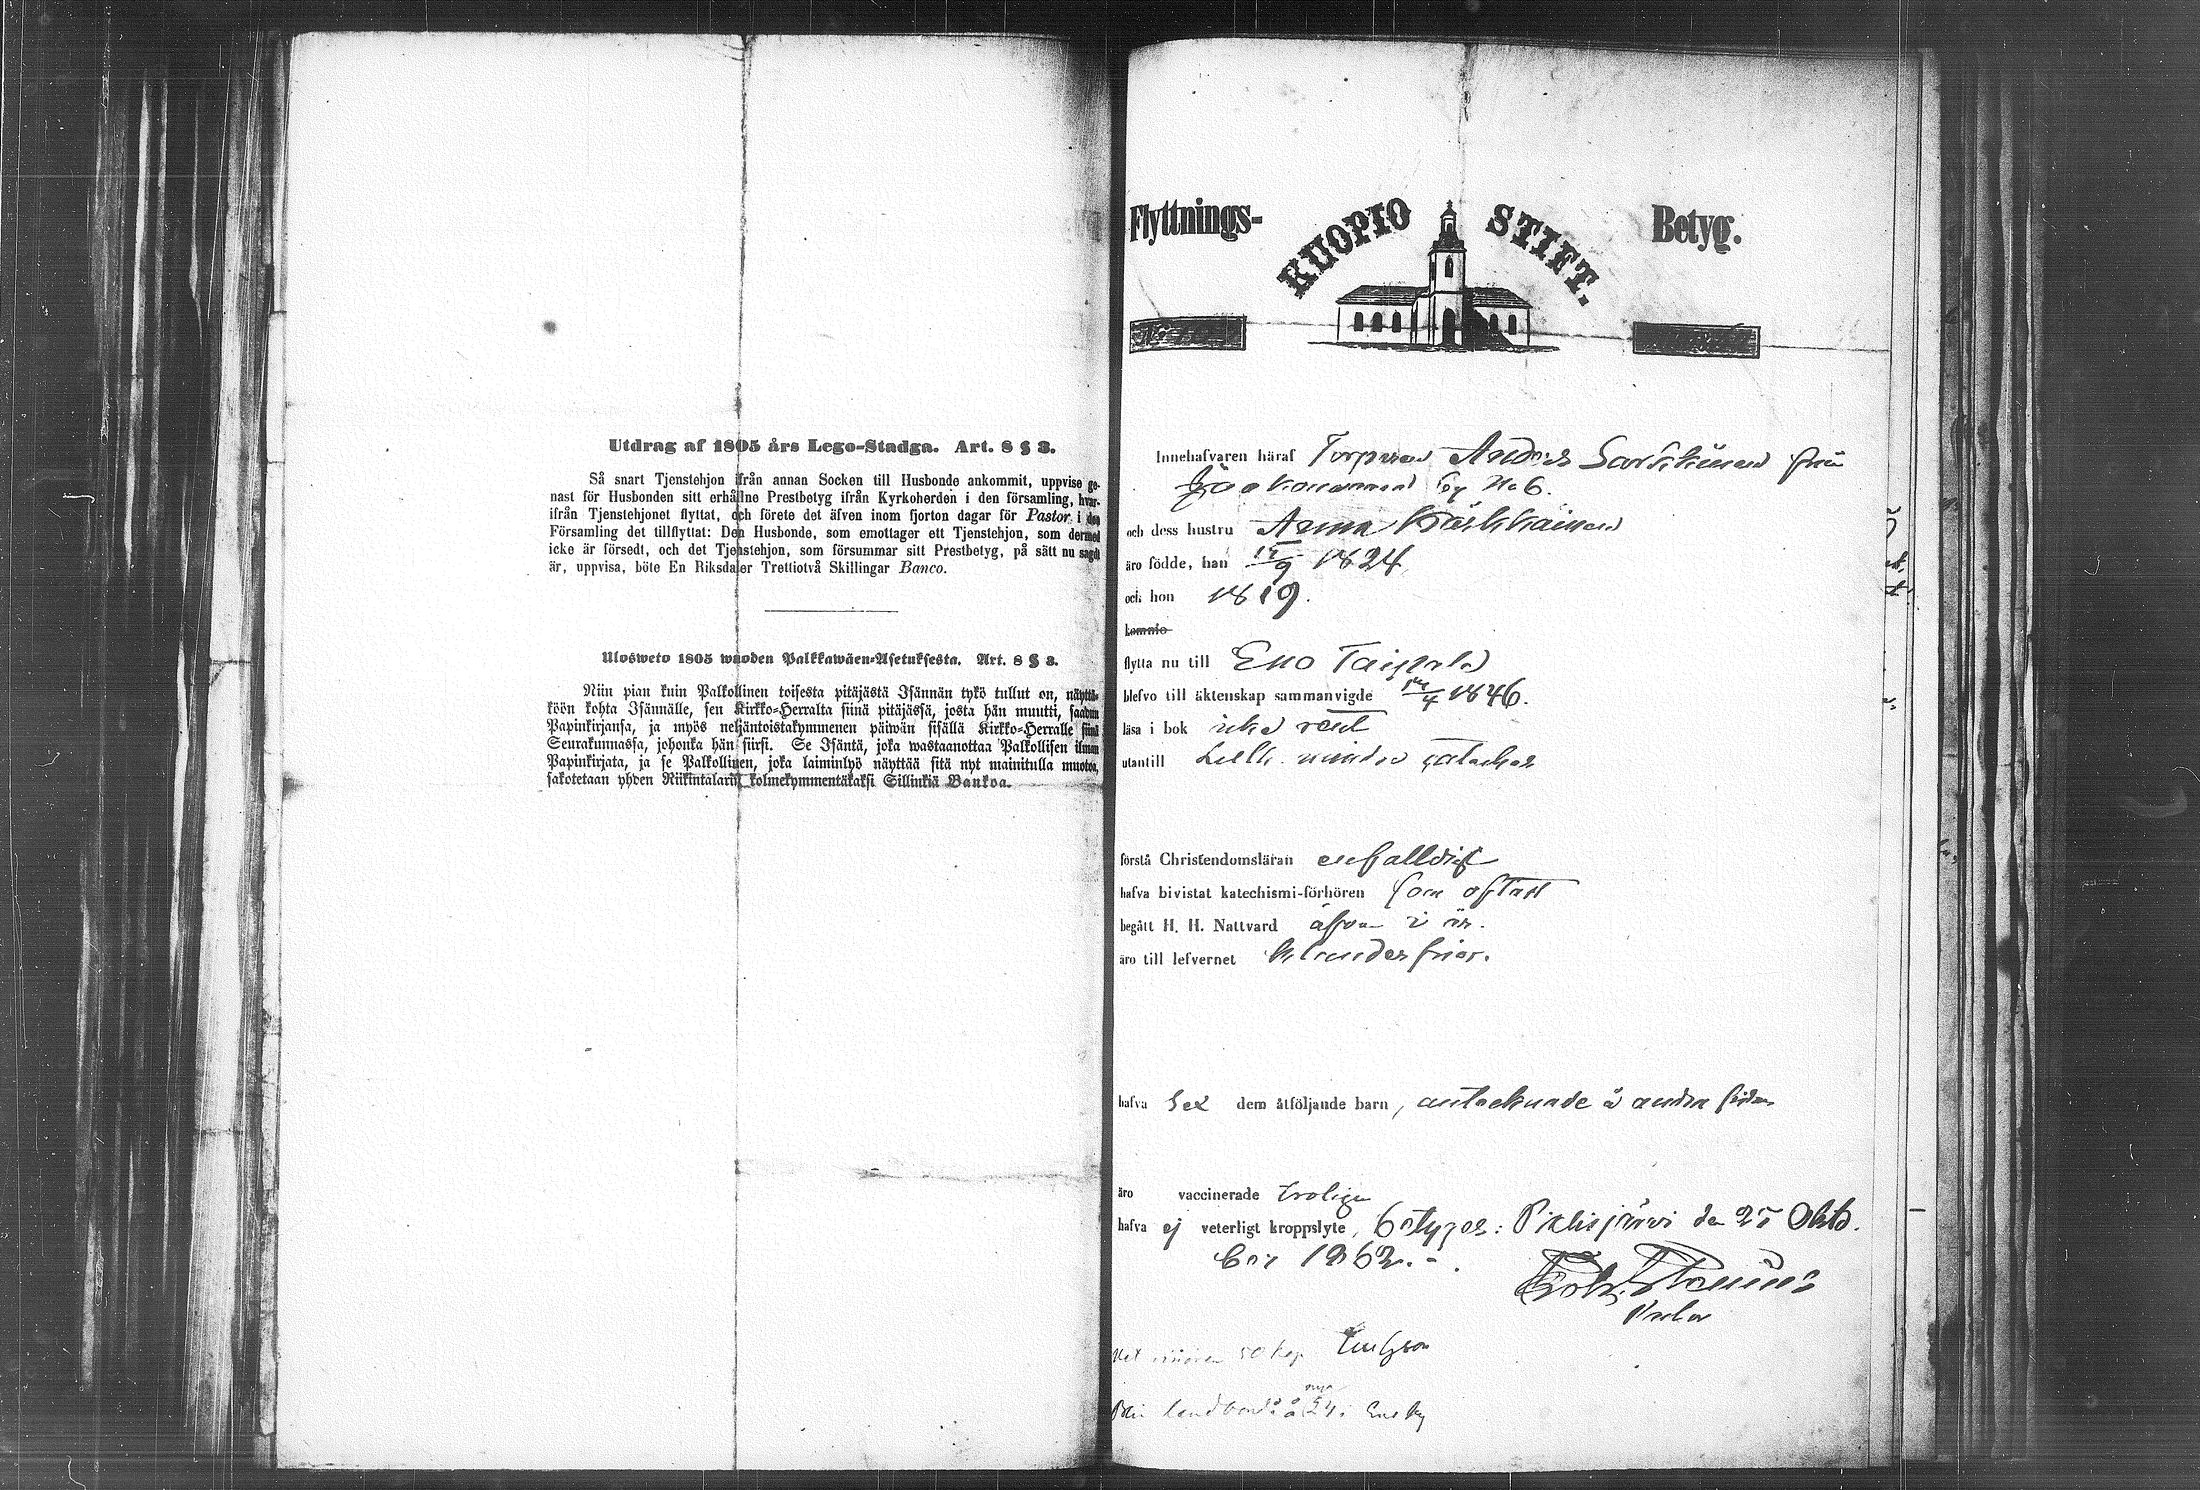 Utdrag af 1805 års Lego-Stadga. Art. 8 § 3.
Så snart Tjenstehjon ifrån annan Socken till Husbonde ankommit, uppvise ge-
nast för Husbonden sitt erhållne Prestbetyg ifrån Kyrkoherden i den församling, hvar-
ifrån Tjenstehjonet flyttat, och förete det äfven inom fjorton dagar för Pastor i den
Församling det tillflyttat: Den Husbonde, som emottager ett Tjenstehjon, som dermed
icke är försedt, och det Tjenstehjon, som försummar sitt Prestbetyg, på sätt nu sagdt
är, uppvisa, böte En Riksdaler Trettiotvå Skillingar Banco.
Ulosweto 1805 wuoden Palkkawäen-Asetuksesta. Art. 8 § 3.
Niin pian kuin Palkollinen toisesta pitäjästä Isännän tykö tullut on, näyttä-
köön kohta Isännälle, sen Kirkko-Herralta siinä pitäjässä, josta hän muutti, saadun
Papinkirjansa, ja myös neljäntoistakymmenen päiwän sisällä Kirkko-Herralle siinä
Seurakunnassa, johonka hän siirsi. Se Isäntä, joka wastaanottaa Palkollisen ilman
Papinkirjata, ja se Palkollinen, joka laiminlyö näyttää sitä nyt mainitulla muotoa,
sakotetaan yhden Riikintalarin kolmekymmentäkaksi Sillinkiä Bankoa.
Flyttnings- KUOPIO STIFT. Betyg.
Innehafvaren häraf Torparen Anders Sarkkinen från
by No 6.
och dess hustru Anna
äro födde, han 1824
och hon 1819.
komnio
flytta nu till Eno Taipale
blefvo till äktenskap sammanvigde 1846.
läsa i bok icke rent
utantill mindre
förstå Christendomsläran enfalldigt
hafva bivistat katechismi-förhören som oftast
begått H. H. Nattvard äfven i år.
äro till lefvernet klanderfrior.
hafva Sex dem åtföljande barn, antecknade å andra sidan
äro vaccinerade troligen
hafva ej veterligt kroppslyte, betygar: Pielisjärvi den 25 Octb.
1862.
50 kop